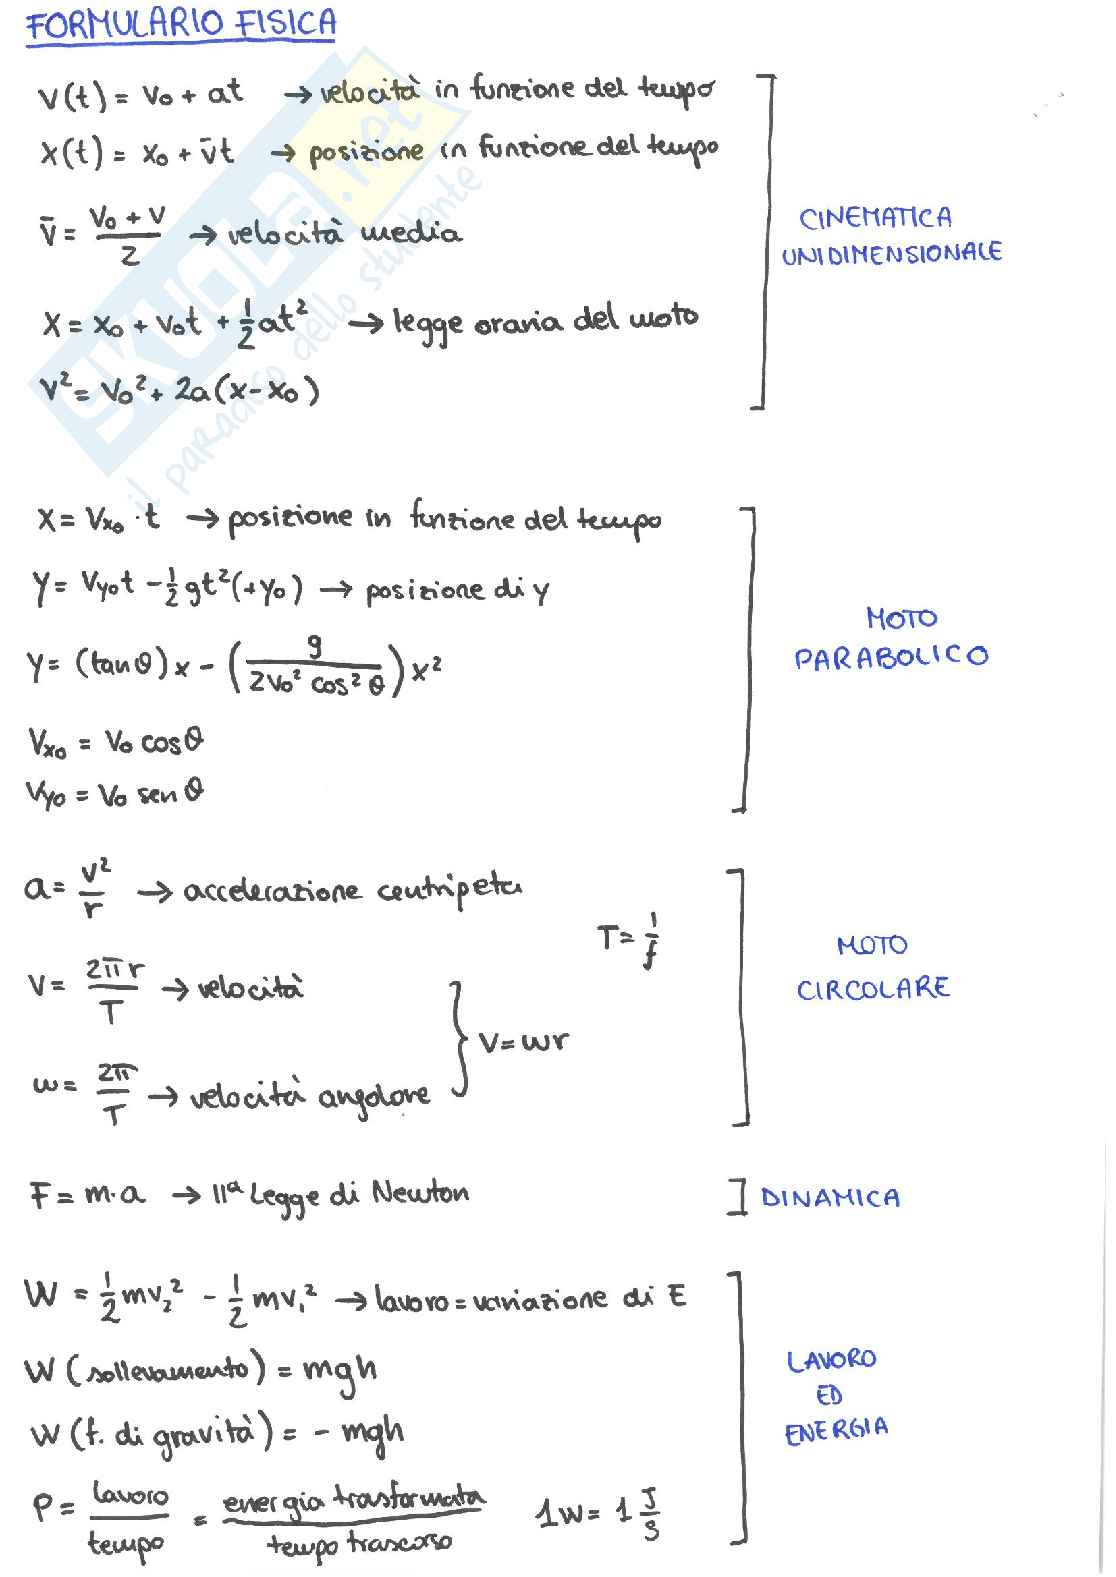 FORMULARIO FISICA
v(t) = v₀ + at → velocità in funzione del tempo
x(t) = x₀ + v̄t → posizione in funzione del tempo
v̄ = (v₀ + v)/2 → velocità media
x = x₀ + v₀t + ½at² → legge oraria del moto
v² = v₀² + 2a(x - x₀)
CINEMATICA
UNIDIMENSIONALE
x = Vx₀ · t → posizione in funzione del tempo
y = Vy₀t - ½gt² (+y₀) → posizione di y
y = (tanθ)x - (g/(2v₀² cos²θ))x²
Vx₀ = V₀ cosθ
Vy₀ = V₀ senθ
MOTO
PARABOLICO
a = v²/r → accelerazione centripeta
T = 1/f
v = 2πr/T → velocità
V = wr
w = 2π/T → velocità angolare
MOTO
CIRCOLARE
F = m·a → IIª Legge di Newton
DINAMICA
W = ½mv₂² - ½mv₁² → lavoro = variazione di E
W (sollevamento) = mgh
W (f. di gravità) = - mgh
P = lavoro/tempo = energia trasformata/tempo trascorso 1W = 1 J/s
LAVORO
ED
ENERGIA
SKUOLA.net
il paradiso dello studente